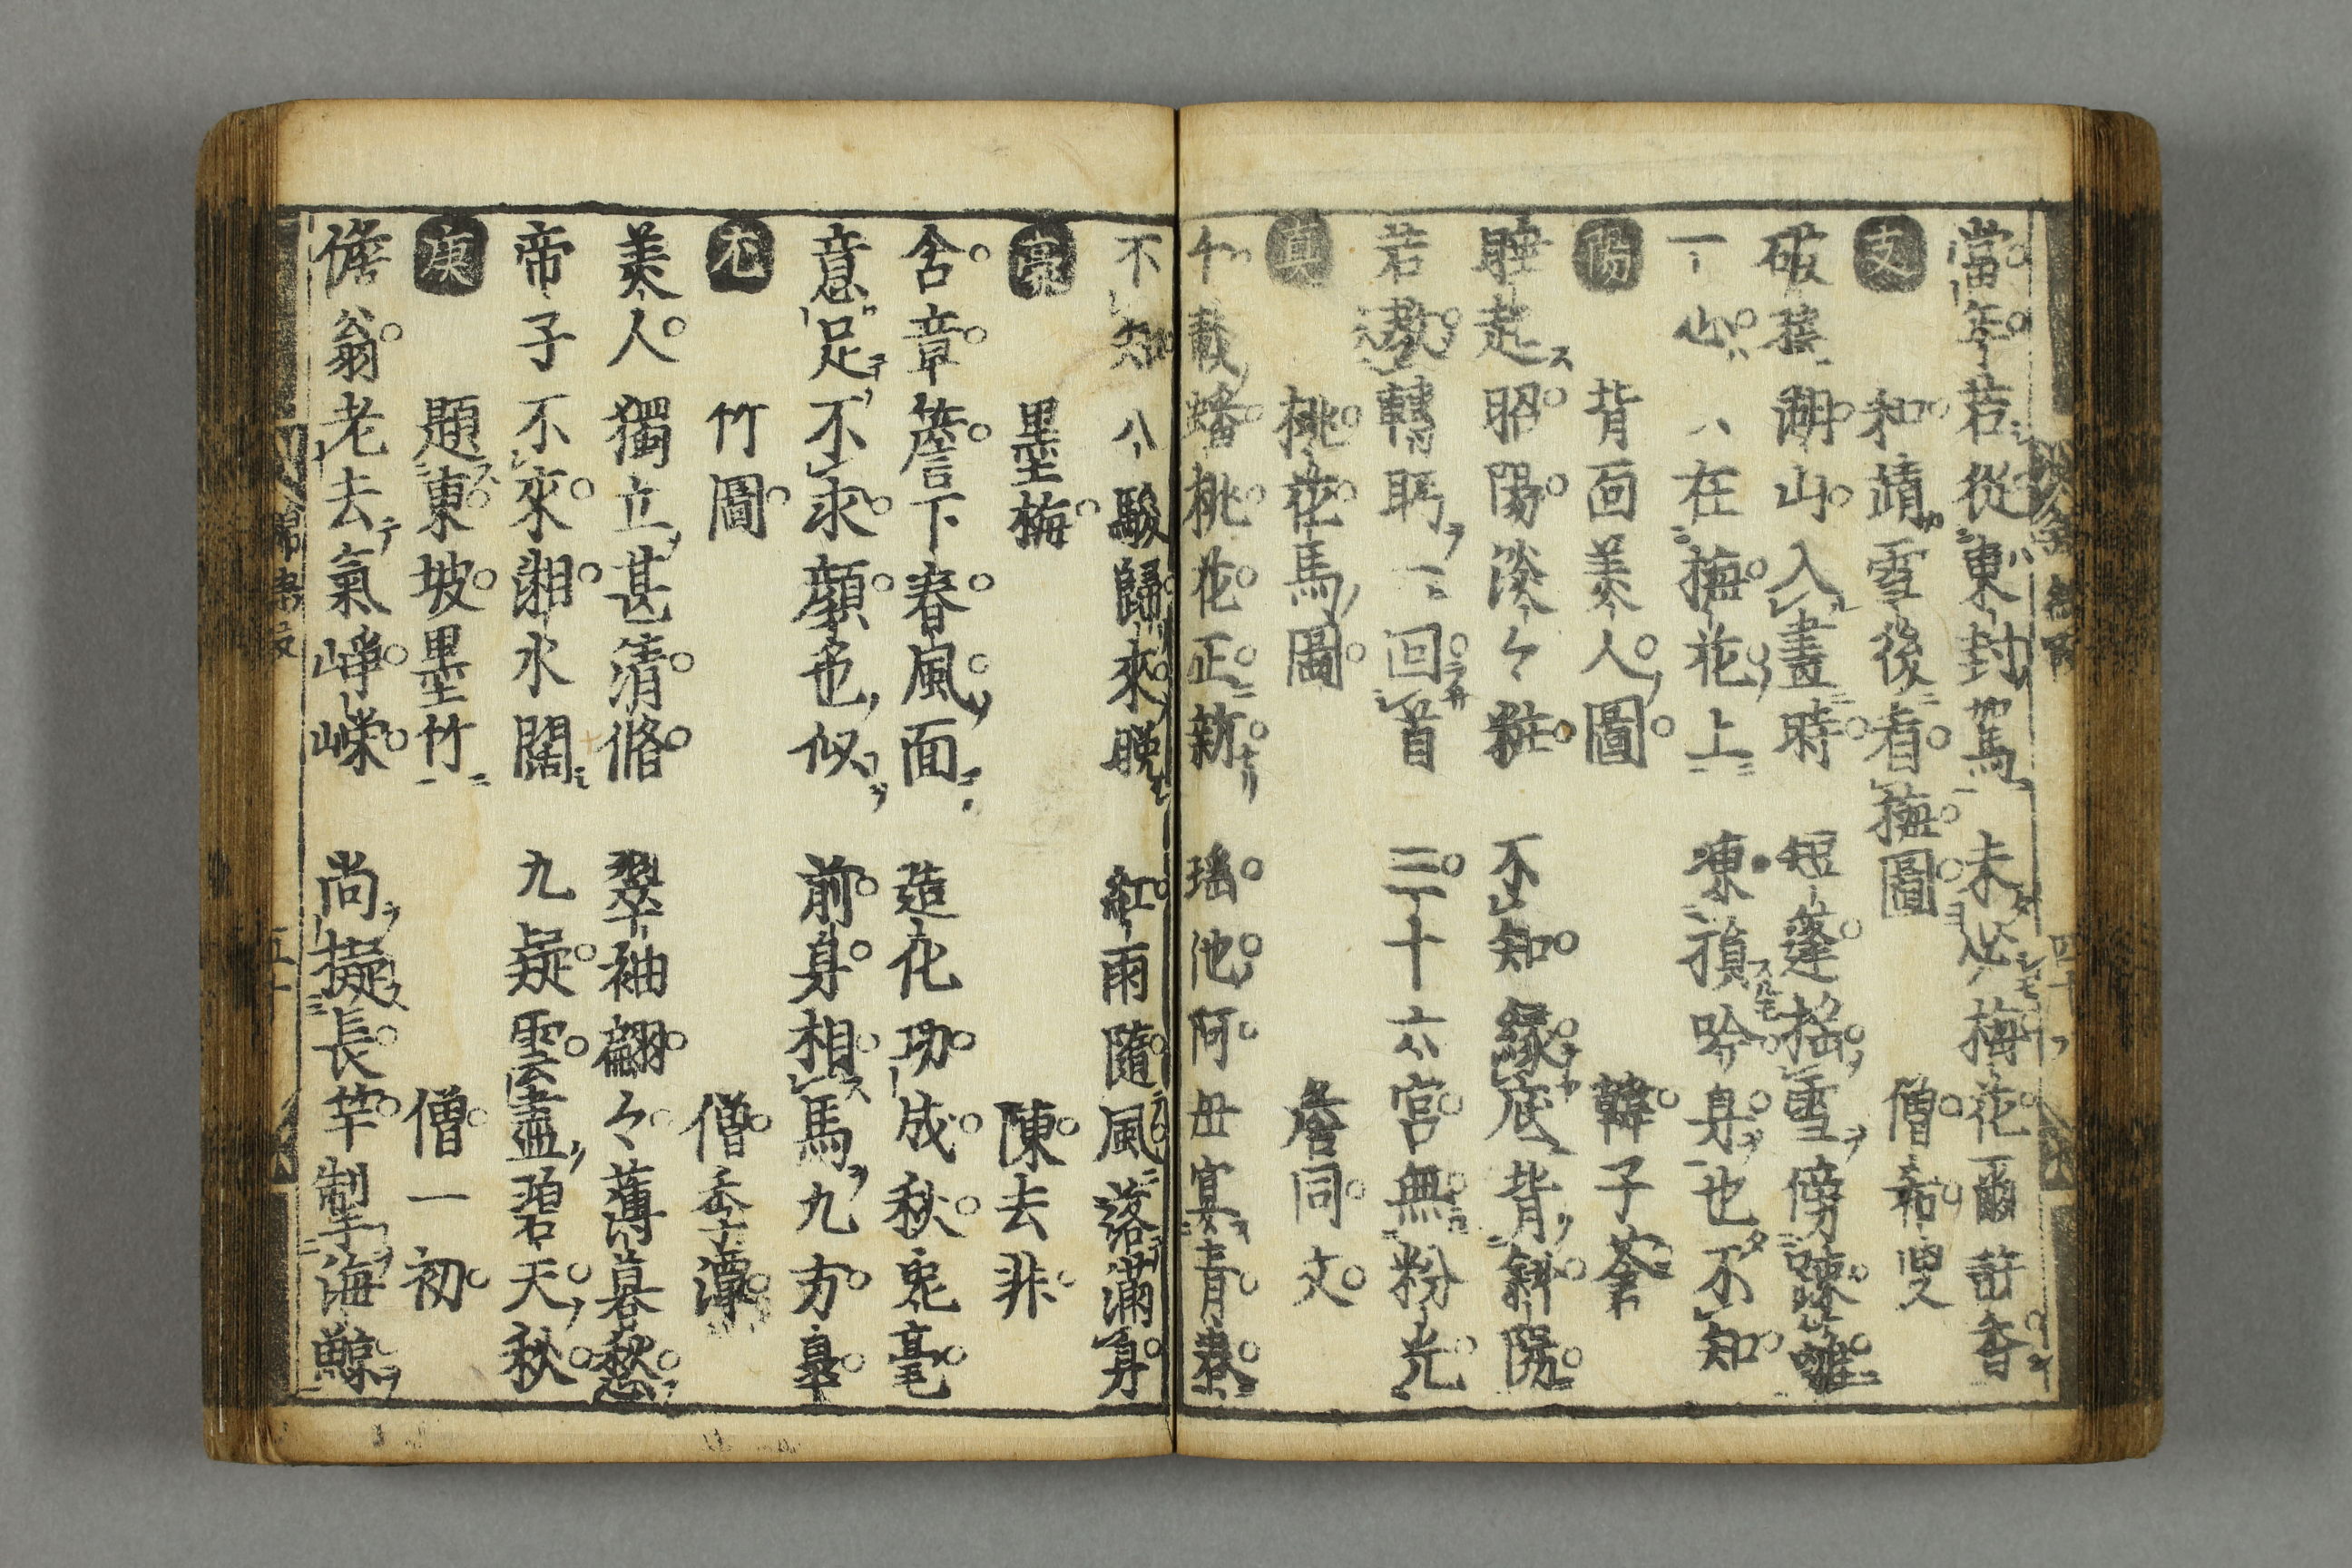 當年若從東封駕 未必梅花爾許香
支 和靖雪後看梅圖 僧希叟
破衣湖山入畫時 短蓬搖雪傍踈籬
一山ハ八在梅花上 凍損吟身也不知
陽 背面美人圖 韓子蒼
睡起昭陽淡々粧 不知緣底背斜陽
若教轉眄一回首 三十六宮無粉光
真 桃花馬圖 詹同文
千載蟠桃花正新 瑤池阿母宴青春
不知八駿歸來晚 紅雨隨風落滿身
豪 墨梅 陳去非
含章簷下春風面 造化功成秋兔毫
意足不求顏色似 前身相馬九方皐
尤 竹圖 僧季潭
美人獨立甚清脩 翠袖翩々薄暮愁
帝子不來湘水闊 九疑雲盡碧天秋
庚 題東坡墨竹 僧一初
儋翁老去氣崢嶸 尚擬長竿掣海鯨